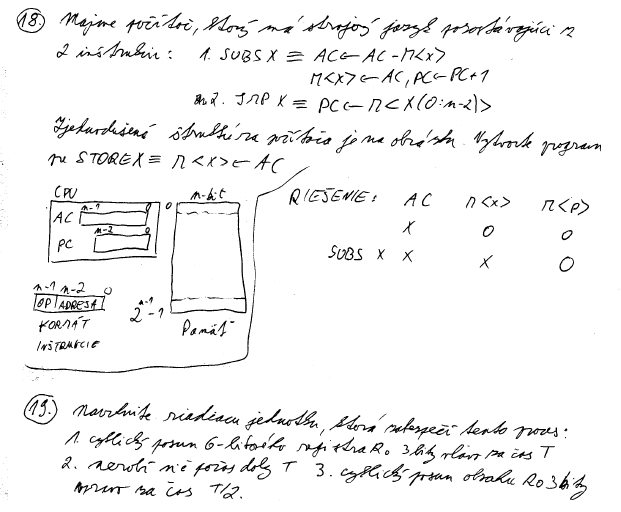 18. Majme počítač, ktorý má strojový jazyk pozostávajúci z
2 inštrukcií: 1. SUBS X ≡ AC ← AC - M<x>
M<x> ← AC, PC ← PC+1
2. JMP X ≡ PC ← M<X(0:n-2)>
Zjednodušená štruktúra počítača je na obrázku. Vytvorte program
pre STORE X ≡ M<x> ← AC
CPU
n-1 0
AC
n-2 0
PC
0 n-bit
2^(n-1)-1
Pamäť
n-1 n-2 0
OP ADRESA
FORMÁT
INŠTRUKCIE
RIEŠENIE: AC M<x> M<p>
X 0 0
SUBS X X X 0
19. Navrhnite riadiacu jednotku, ktorá zabezpečí tento proces:
1. cyklický posun 6-bitového registra R0 3 bity vľavo za čas T
2. nerobí nič počas doby T 3. cyklický posun obsahu R0 3 bity
vpravo za čas T/2.